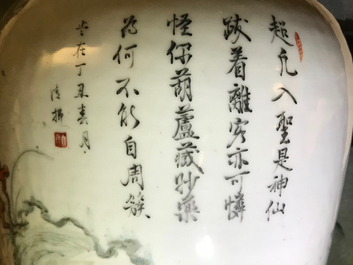 超凡入聖是神仙
跛着離宫亦可憐
怪你葫蘆藏妙藥
為何不能自周旋
岁在丁丑春月